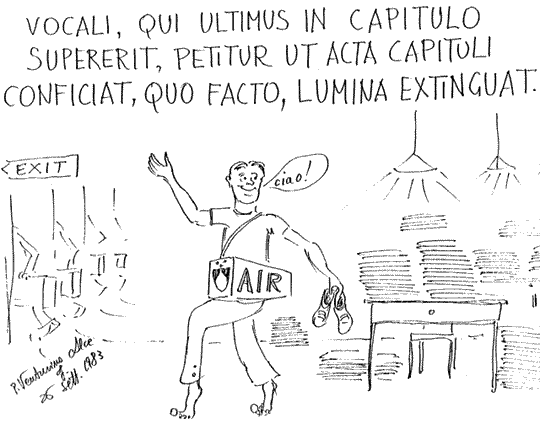 VOCALI, QUI ULTIMUS IN CAPITULO
SUPERERIT, PETITUR UT ACTA CAPITULI
CONFICIAT, QUO FACTO, LUMINA EXTINGUAT.
EXIT
ciao!
AIR
P. Venturino Alce
26 Sett. 1983